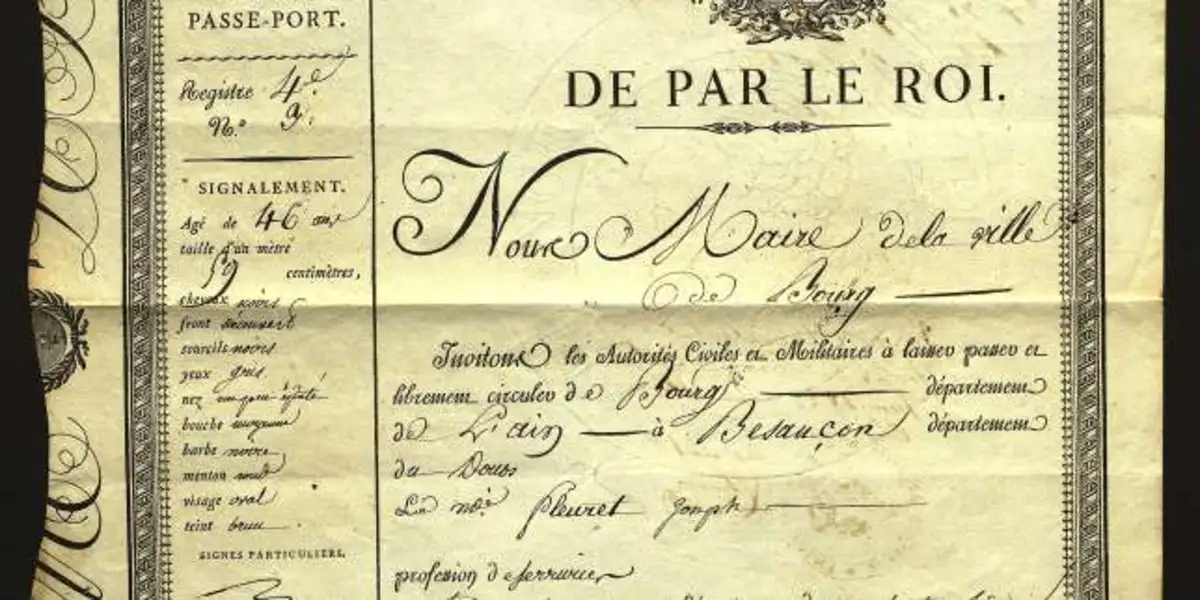 PASSE-PORT.
Registre 4e
N.o 3.
SIGNALEMENT.
Agé de 46 ans
taille d'un mètre
59 centimètres,
cheveux noirs
front découvert
sourcils noirs
yeux gris
nez un peu épaté
bouche moyenne
barbe noire
menton rond
visage oval
teint brun
SIGNES PARTICULIERS.
DE PAR LE ROI.
Nous Maire de la ville
de Bourg
Invitons les Autorités Civiles et Militaires à laisser passer et
librement circuler de Bourg département
de L'ain à Besançon département
du Doubs
Le né. Pleuret Joseph
profession de serrurier